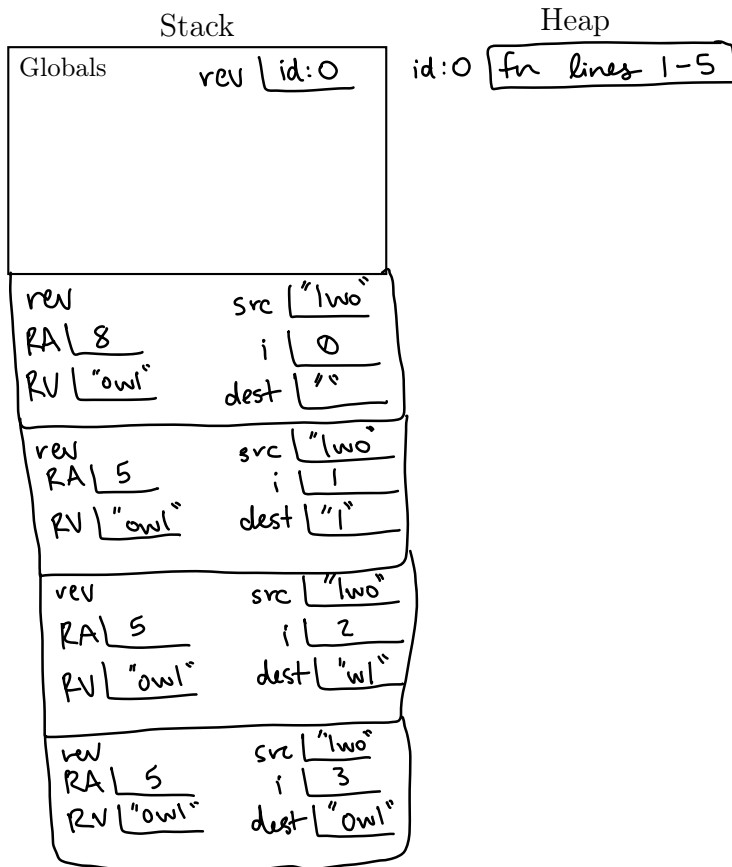 Stack Heap
Globals rev id:0 id:0 fn lines 1-5
rev src "lwo"
RA 8 i 0
RV "owl" dest ""
rev src "lwo"
RA 5 i 1
RV "owl" dest "l"
rev src "lwo"
RA 5 i 2
RV "owl" dest "wl"
rev src "lwo"
RA 5 i 3
RV "owl" dest "owl"